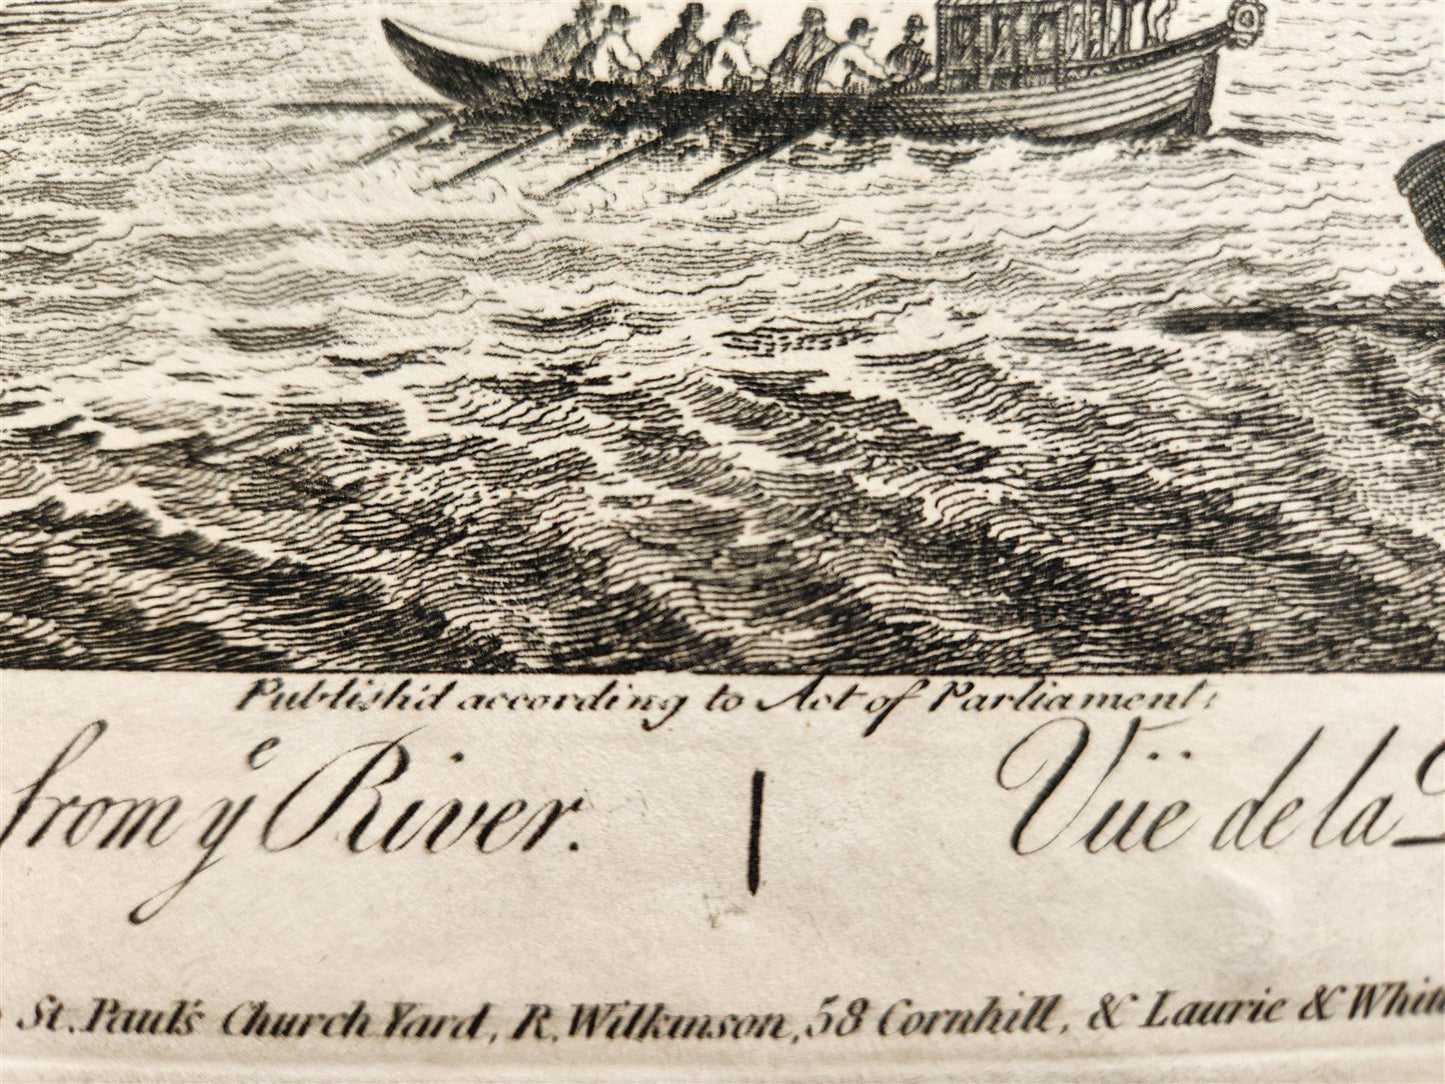 Publish'd according to Act of Parliament.
from yᵉ River. | Vüë de la
St. Paul's Church Yard, R. Wilkinson, 58 Cornhill, & Laurie &